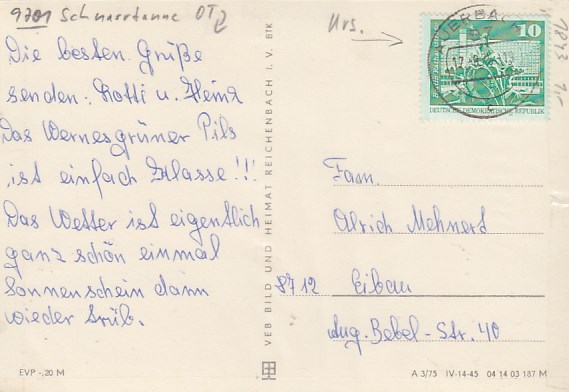 9701 Schnarrtanne OT2
Urs.
1843
1,-
10
DEUTSCHE DEMOKRATISCHE REPUBLIK
Die besten Grüße
senden: Lotti u. Heinz
Das Wernesgrüner Pils
ist einfach Klasse!!!
Das Wetter ist eigentlich
ganz schön einmal
Sonnenschein dann
wieder trüb.
VEB BILD UND HEIMAT REICHENBACH I. V. BfK
Fam.
Ulrich Mehnert
8712 Eibau
Aug. Bebel-Str. 40
EVP -,20 M
A 3/75 IV-14-45 04 14 03 187 M